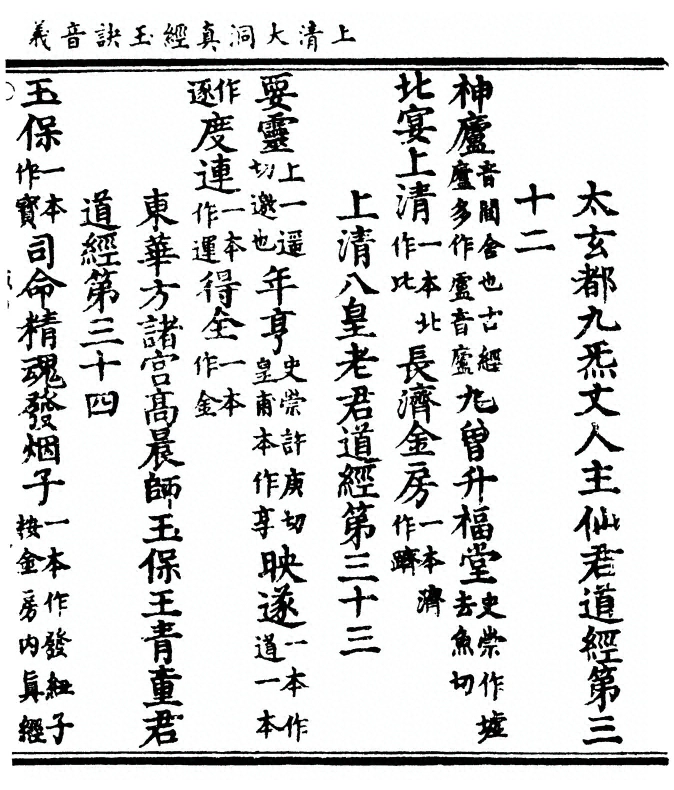 上清大洞真經玉訣音義
太玄都九炁丈人主仙君道經第三
十二
神廬音閭舍也古經廬多作盧音廬九曾升楅堂史崇作墟去魚切
北宴上清一本北作比長濟金房一本濟作躋
上清八皇老君道經第三十三
要靈上一遥切邀也年亨史崇許庚切皇甫本作享映遂一本作道一本
作逐度連一本作運得全一本作金
東華方諸宮高晨師玉保王青童君
道經第三十四
玉保一本作寶司命精魂發烟子一本作發紐子按金房内真經